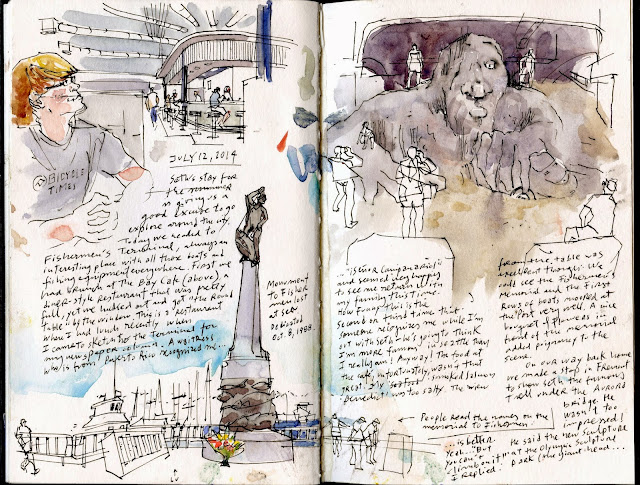 BICYCLE
TIMES
JULY 12, 2014
Seth's stay for
the summer
is giving us a
good excuse to go
explore around the city.
Today we headed to
Fishermen's Terminal, always an
interesting place with all those boats and
fishing equipment everywhere. First we
had brunch at the Bay Cafe (above), a
diner-style restaurant that was pretty
full, yet we lucked out and got "the Round
table" by the window. This is a restaurant
where I had lunch recently when
I came to sketch the Terminal for
my newspaper column. A waitress
who is from Puerto Rico recognized me...
Monument
to Fisher-
men lost
at sea
Dedicated
Oct. 8, 1988.
and seemed very happy
to see me return with
my family this time.
How funny this is the
second or third time that
someone recognizes me while I'm
out with Seth - he's going to think
I'm more famous than
I really am! Anyway! The food at
the cafe, unfortunately, wasn't that
great. My Seafood smoked salmon
Benedict was too salty. The view
from the table was
excellent though. We
could see the Fishermen's
Memorial and the first
Rows of boats moored at
the Port very well. A nice
bouquet of flowers in
front of the memorial
added poignancy to the
scene.
On our way back home
we made a stop in Fremont
to show Seth the famous
troll under the Aurora
bridge. He
wasn't too
impressed!
He said the new sculpture
at the Olympic Sculpture
Park (the giant head...
People Read the names on the
memorial to Fishermen.
is better.
Yeah... But
you can't
climb on it!"
I replied.